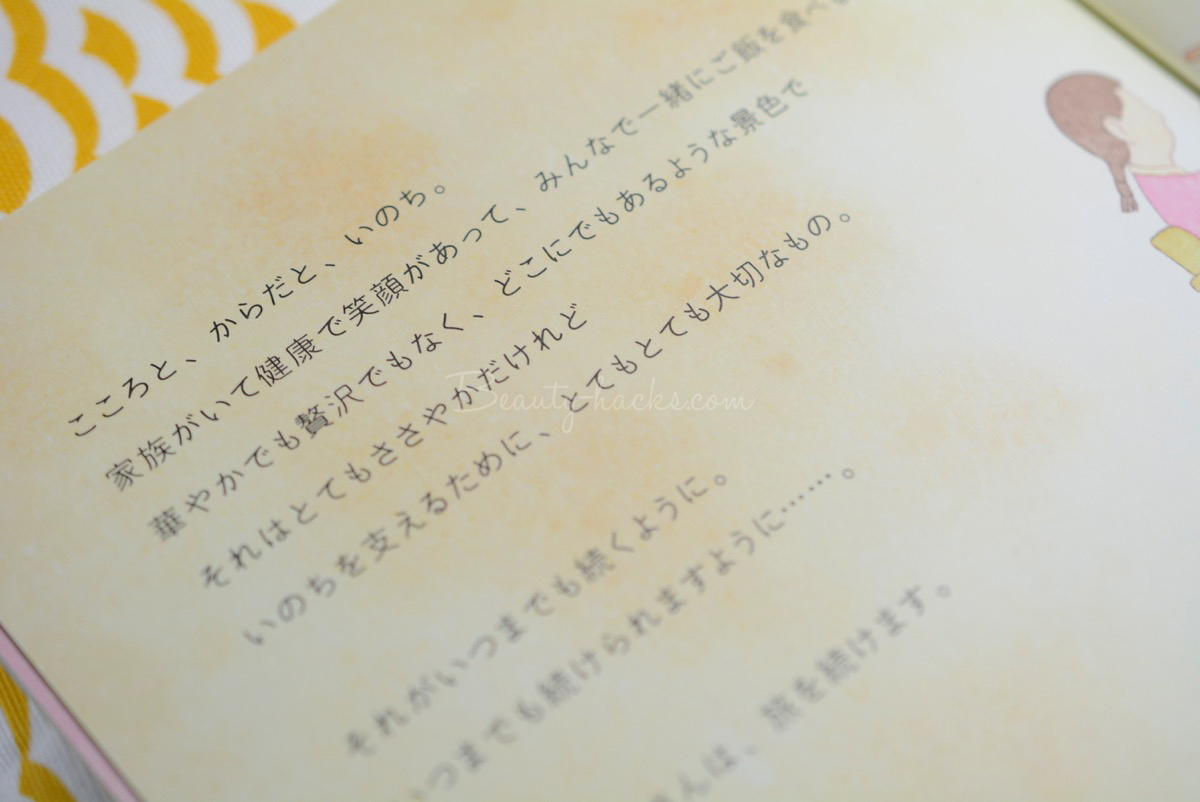 こころと、からだと、いのち。
家族がいて健康で笑顔があって、みんなで一緒にご飯を食べ
華やかでも贅沢でもなく、どこにでもあるような景色で
それはとてもささやかだけれど
いのちを支えるために、とてもとても大切なもの。
それがいつまでも続くように。
いつまでも続けられますように……。
さんは、旅を続けます。
Beauty-hacks.com